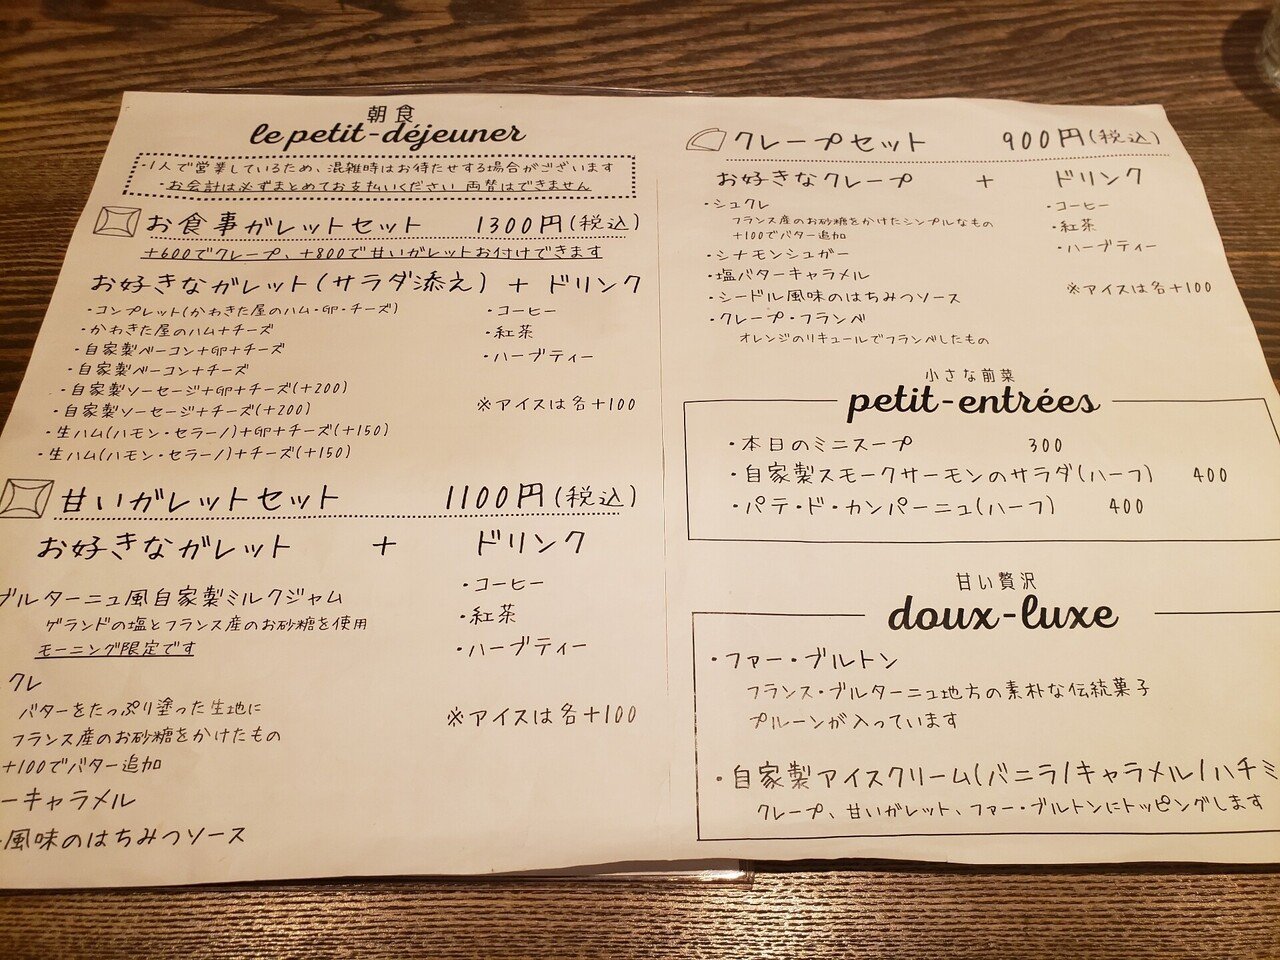 朝食
le petit-déjeuner
・1人で営業しているため、混雑時はお待たせする場合がございます
・お会計は必ずまとめてお支払いください 両替はできません
お食事ガレットセット 1300円(税込)
+600でクレープ、+800で甘いガレットお付けできます
お好きなガレット(サラダ添え) + ドリンク
・コンプレット(かわきた屋のハム・GP・チーズ)
・かわきた屋のハム+チーズ
・自家製ベーコン+GP+チーズ
・自家製ベーコン+チーズ
・自家製ソーセージ+GP+チーズ(+200)
・自家製ソーセージ+チーズ(+200)
・生ハム(ハモン・セラーノ)+GP+チーズ(+150)
・生ハム(ハモン・セラーノ)+チーズ(+150)
・コーヒー
・紅茶
・ハーブティー
※アイスは各+100
甘いガレットセット 1100円(税込)
お好きなガレット + ドリンク
ブルターニュ風自家製ミルクジャム
ゲランドの塩とフランス産のお砂糖を使用
モーニング限定です
クレ
バターをたっぷり塗った生地に
フランス産のお砂糖をかけたもの
+100でバター追加
ーキャラメル
風味のはちみつソース
・コーヒー
・紅茶
・ハーブティー
※アイスは各+100
クレープセット 900円(税込)
お好きなクレープ + ドリンク
・シュクレ
フランス産のお砂糖をかけたシンプルなもの
+100でバター追加
・シナモンシュガー
・塩バターキャラメル
・シードル風味のはちみつソース
・クレープ・フランベ
オレンジのリキュールでフランベしたもの
・コーヒー
・紅茶
・ハーブティー
※アイスは各+100
小さな前菜
petit-entrées
・本日のミニスープ 300
・自家製スモークサーモンのサラダ(ハーフ) 400
・パテ・ド・カンパーニュ(ハーフ) 400
甘い贅沢
doux-luxe
・ファー・ブルトン
フランス・ブルターニュ地方の素朴な伝統菓子
プルーンが入っています
・自家製アイスクリーム(バニラ/キャラメル/ハチミ
クレープ、甘いガレット、ファー・ブルトンにトッピングします